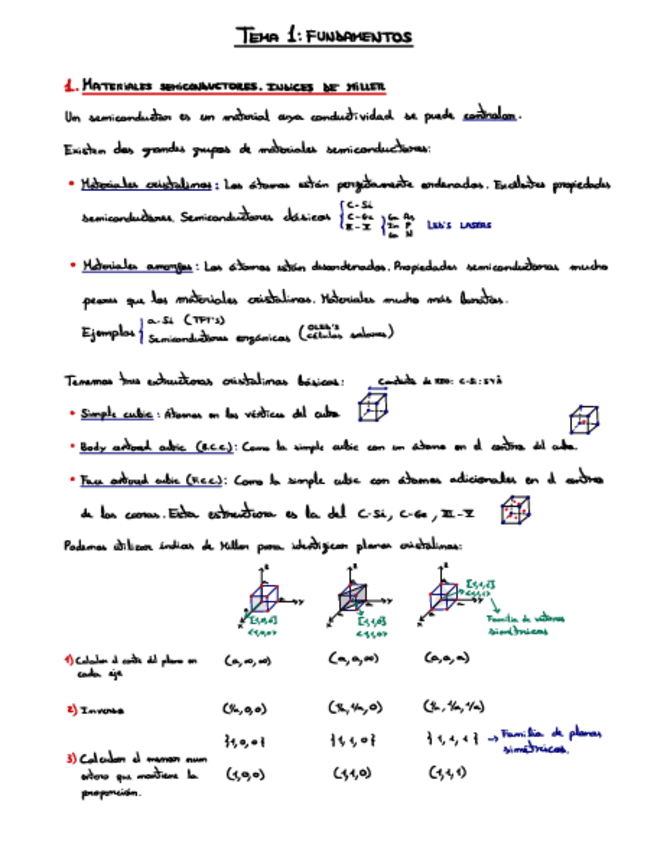 TEMA 1: FUNDAMENTOS
1. MATERIALES SEMICONDUCTORES. INDICES DE MILLER
Un semiconductor es un material cuya conductividad se puede controlar.
Existen dos grandes grupos de materiales semiconductores:
• Materiales cristalinos: Los átomos están perfectamente ordenados. Excelentes propiedades
semiconductores. Semiconductores clásicos { C-Si
C-Ge
III-V { Ga As
In P
Ga N
LED'S LASERS
• Materiales amorfos: Los átomos están desordenados. Propiedades semiconductoras mucho
peores que los materiales cristalinos. Materiales mucho más baratos.
Ejemplos { a-Si (TFT's)
Semiconductores orgánicos (OLED's células solares)
Tenemos tres estructuras cristalinas básicas:
Constante de red: C-Si:
• Simple cubic: Átomos en los vértices del cubo
• Body centered cubic (B.C.C.): Como la simple cubic con un átomo en el centro del cubo.
• Face centered cubic (F.C.C.): Como la simple cubic con átomos adicionales en el centro
de las caras. Esta estructura es la del C-Si, C-Ge, III-V
Podemos utilizar índices de Miller para identificar planos cristalinos:
z z z
y y y
x x x
[1,0,0] [1,1,0] [1,1,1]
<1,0,0> <1,1,0> <1,1,1>
Familia de vectores
simétricos
1) Calcular el corte del plano en
cada eje
(a,∞,∞) (a,a,∞) (a,a,a)
2) Inverso (1/a,0,0) (1/a,1/a,0) (1/a,1/a,1/a)
{1,0,0} {1,1,0} {1,1,1} → Familia de planos
simétricos.
3) Calcular el menor num
entero que mantiene la
proporción.
(1,0,0) (1,1,0) (1,1,1)